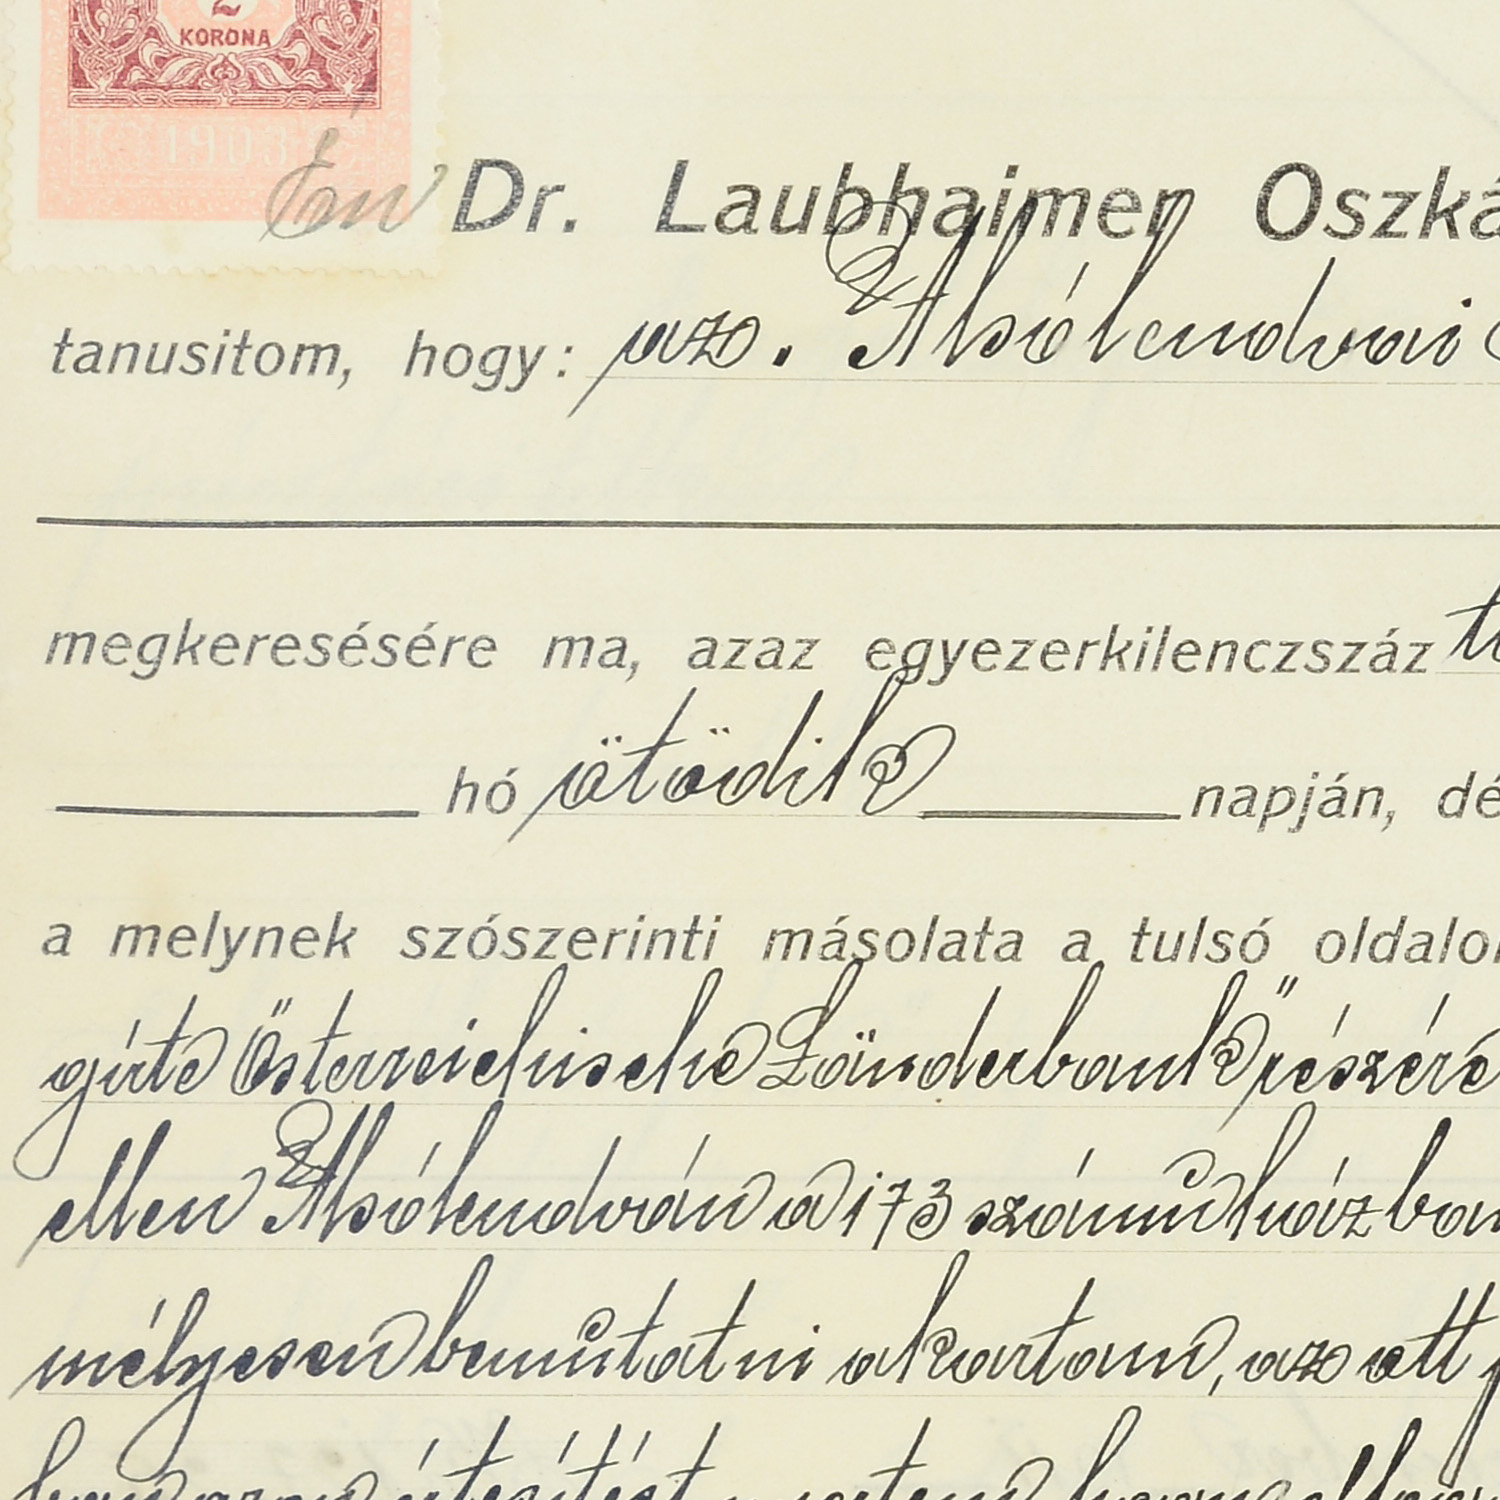 2
KORONA
1903
Én Dr. Laubhaimer Oszká
tanusitom, hogy: az. Alsólendvai
megkeresésére ma, azaz egyezerkilenczszáz ti
hó ötödik napján, dé
a melynek szószerinti másolata a tulsó oldalon
girte Österreichische Länderbank" részére
ellen Alsólendván a 173 számu házban
mélyesen bemutatni akartam, az ott
ban azon értesítést